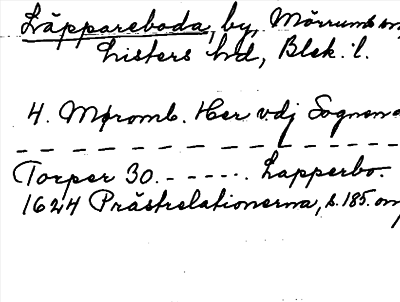 Läppareboda, by, Mörrums
Listers hd, Blek. l.
4. Møromb. Her vdj Sognen
Torper 30. - - - - - - Lapperbo.
1624 Prästrelationerna, s. 185.